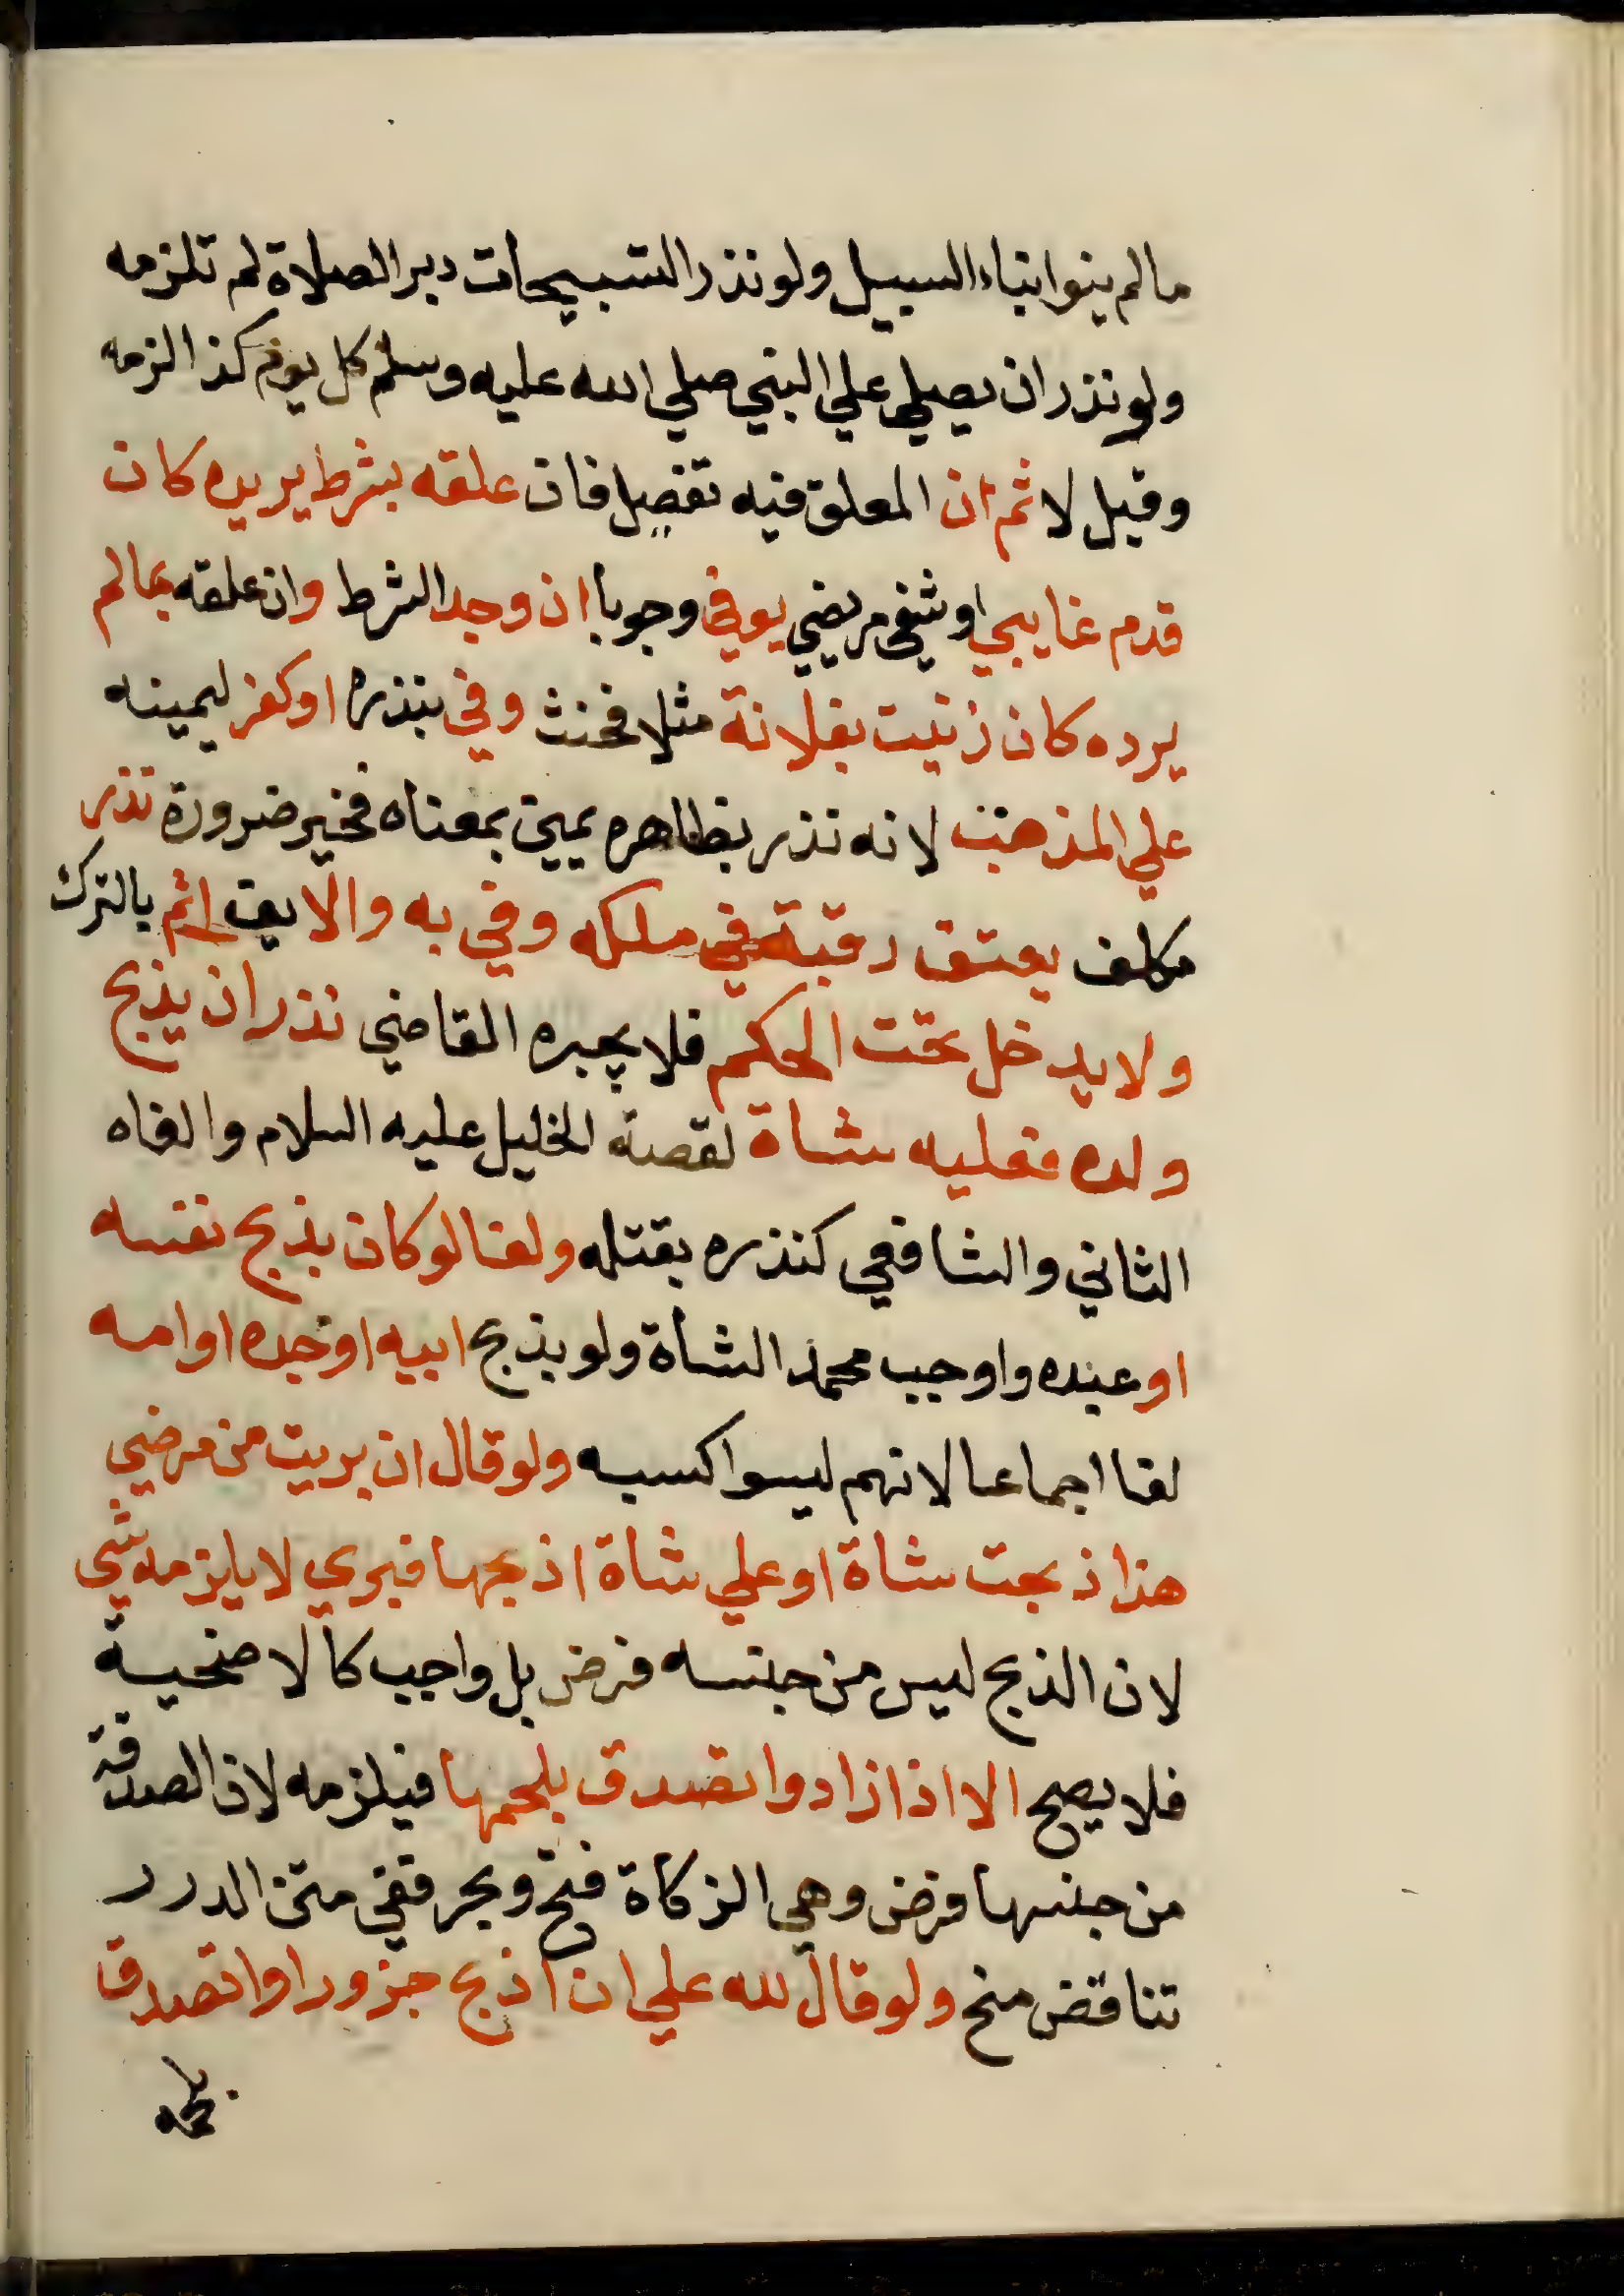 مالم ينوا ابناء السبيل ولو نذر التسبيحات دبر الصلاة لم تلزمه
ولو نذر ان يصلي علي النبي صلي الله عليه وسلم كل يوم كذا لزمه
وقيل لا ثم ان المعلق فيه تفصيل فان علقه بشرط يريده كان
قدم غايبي او شفي مريضي يوفي وجوبا ان وجد الشرط وان علقه بمالم
يرده كان زنيت بفلانة مثلا فحنث وفي بنذره او كفر ليمينه
علي المذهب لانه نذر بظاهره يمين بمعناه فخير ضرورة نذر
مكلف بعتق رقبة في ملكه وفي به والا يف اثم بالترك
ولا يدخل تحت الحكم فلا يجبره القاضي نذر ان يذبح
ولده فعليه شاة لقصة الخليل عليه السلام والغاه
الثاني والشافعي كنذره بقتله ولغا لو كان بذبح نفسه
او عبده واوجب محمد الشاة ولو بذبح ابيه او جده او امه
لغا اجماعا لانهم ليسوا كسبه ولو قال ان بريت من مرضي
هذا ذبحت شاة او علي شاة اذبحها فبري لا يلزمه شي
لان الذبح ليس من جنسه فرض بل واجب كالاضحية
فلا يصح الا اذا زاد واتصدق بلحمها فيلزمه لان الصدقة
من جنسها فرض وهي الزكاة فتح وبحر ففي متن الدرر
تناقض منح ولو قال لله علي ان اذبح جزورا واتصدق
بلحمه